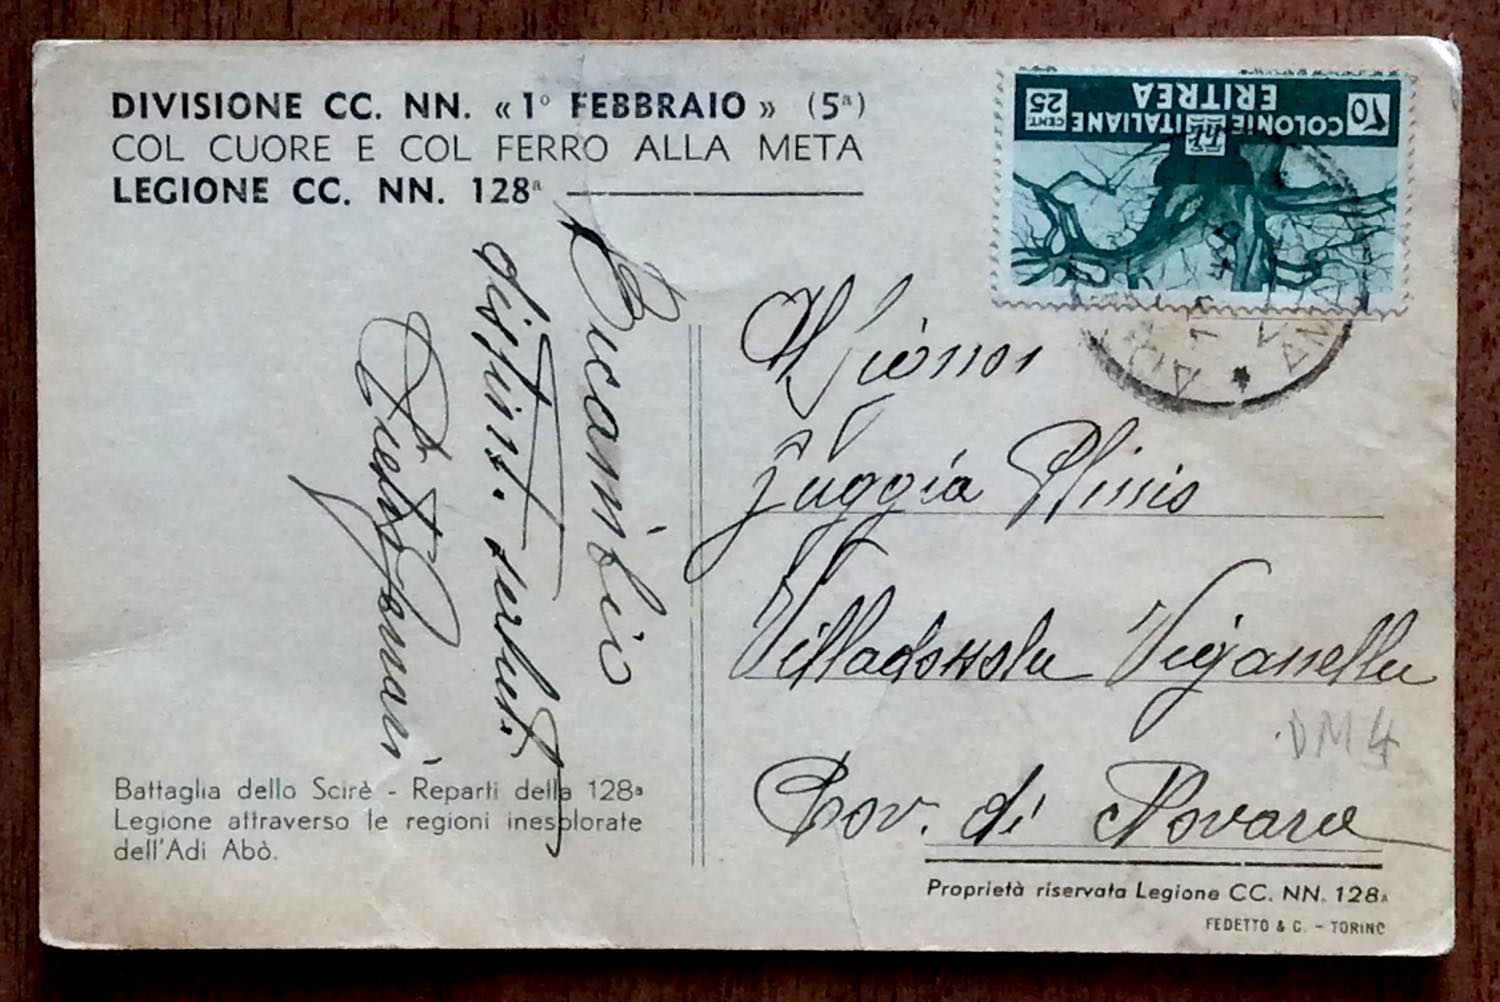 DIVISIONE CC. NN. « 1° FEBBRAIO » (5ª)
COL CUORE E COL FERRO ALLA META
LEGIONE CC. NN. 128ª
COLONIE ITALIANE
ERITREA
10
CENT. 25
Ricambio
distint. saluti
Signor
Villadossola Viganella
Prov. di Novara
DM4
Battaglia dello Scirè - Reparti della 128ª
Legione attraverso le regioni inesplorate
dell'Adi Abò.
Proprietà riservata Legione CC. NN. 128ª
FEDETTO & C. - TORINO